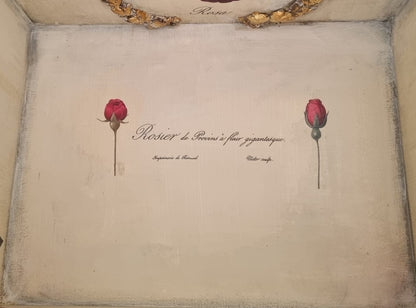 Rosier
Rosier de Provins à fleur gigantesque.
Imprimerie de Rémond Victor sculp.